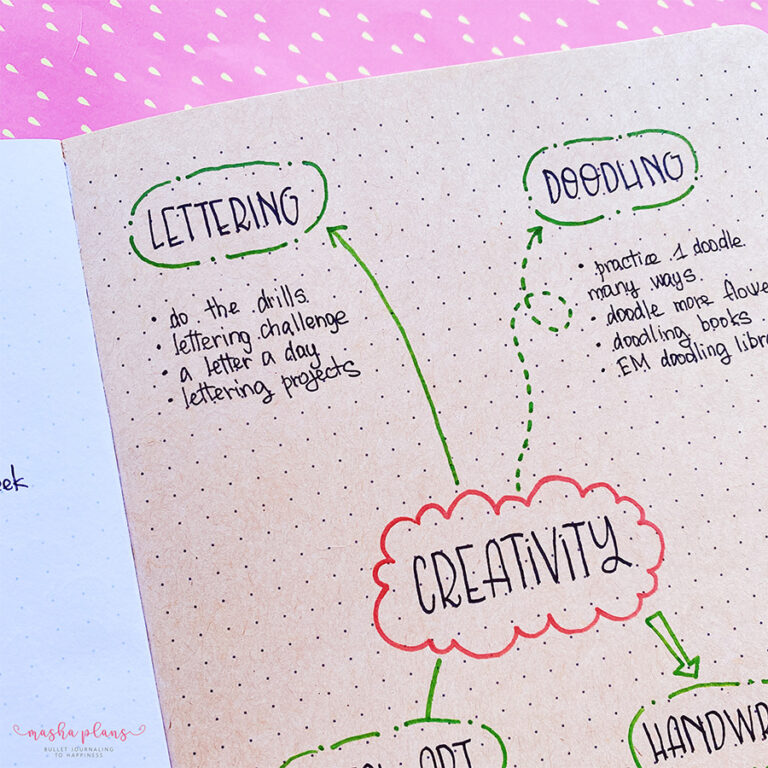 LETTERING
• do the drills.
• lettering challenge
• a letter a day
• lettering projects
DOODLING
• practize 1 doodle
many ways.
• doodle more
• doodling books
• EM doodling
CREATIVITY
ART
masha plans
BULLET JOURNALING
TO HAPPINESS